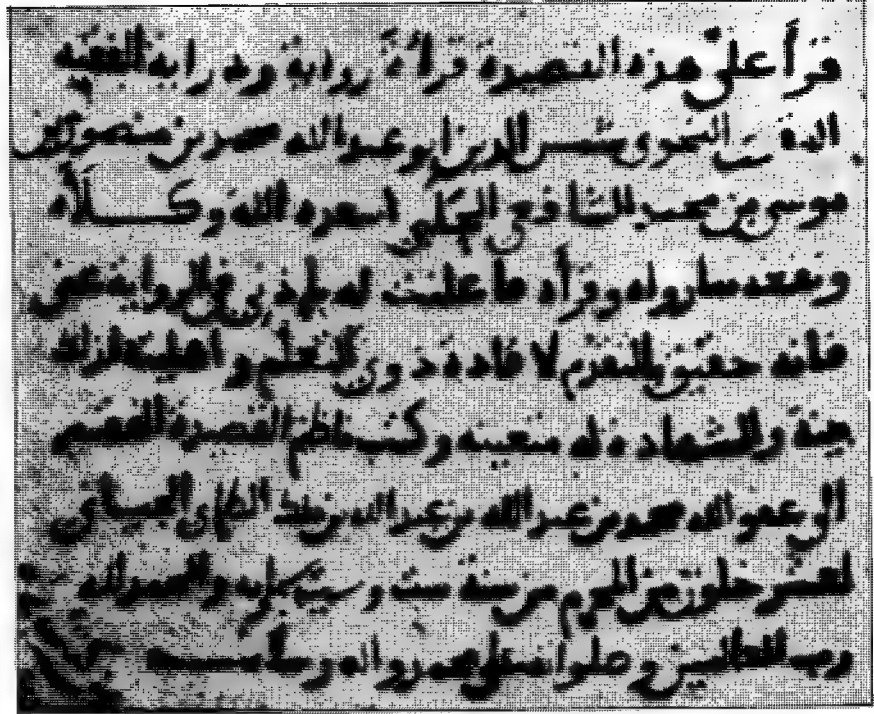 قرأ علي هذه القصيدة قراءة رواية ودراية الفقيه
النحوي شمس الدين أبو عبد الله محمد بن منصور بن
موسى بن محمد الشافعي أسعده الله وكلأه
وسمعه وقرأه ما علمت له بلديني في الرواية عني
فإنه حقيق بالتقدم لإفادة ذوي التعلم و لذلك
والشهادة له متعينة وكتب ناظم القصيدة الفقير
إلى عفو الله محمد بن عبد الله بن عبد الله بن ملك الطائي الجياني
لعشر خلون من المحرم من سنة ست وستين وستمائة والحمد لله
رب العالمين وصلواته على محمد وآله وسلامـــه